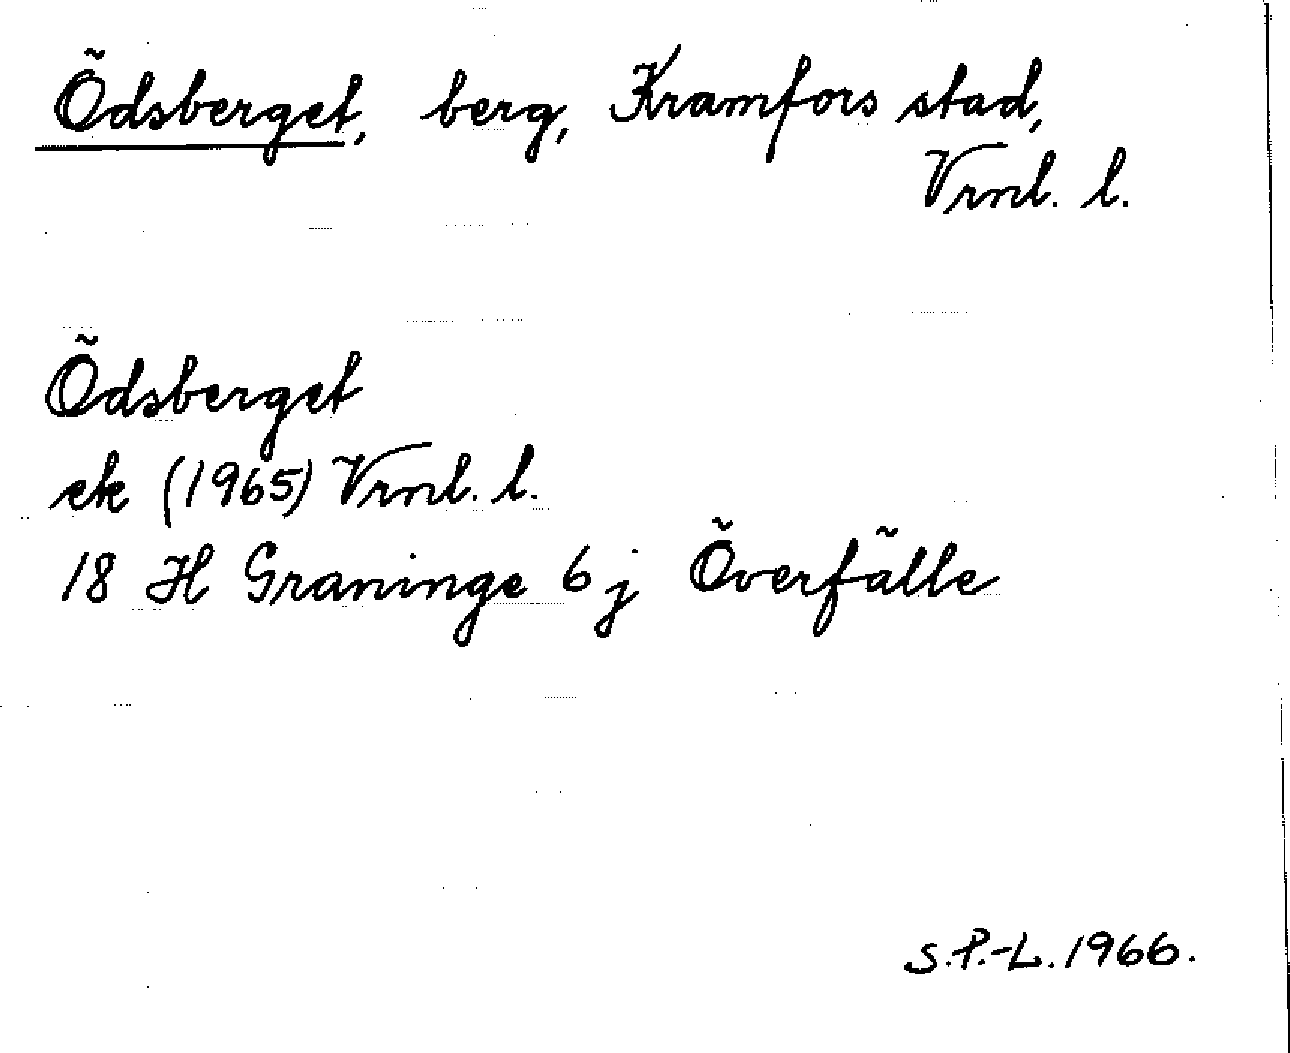 Ödsberget, berg, Kramfors stad,
Vrnl. l.
Ödsberget
ek (1965) Vrnl. l.
18 H Graninge 6 j Överfälle
S.P.-L. 1966.